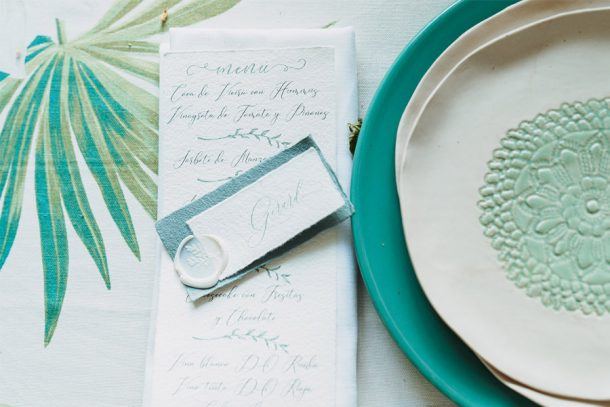 menú
Coca de Vieira con Hummus
Vinagreta de Tomate y Piñones
Sorbete de Manz
Gerard
con Fresitas
y Chocolate
Vino blanco D.O Rueda
Vino tinto D.O Rioja